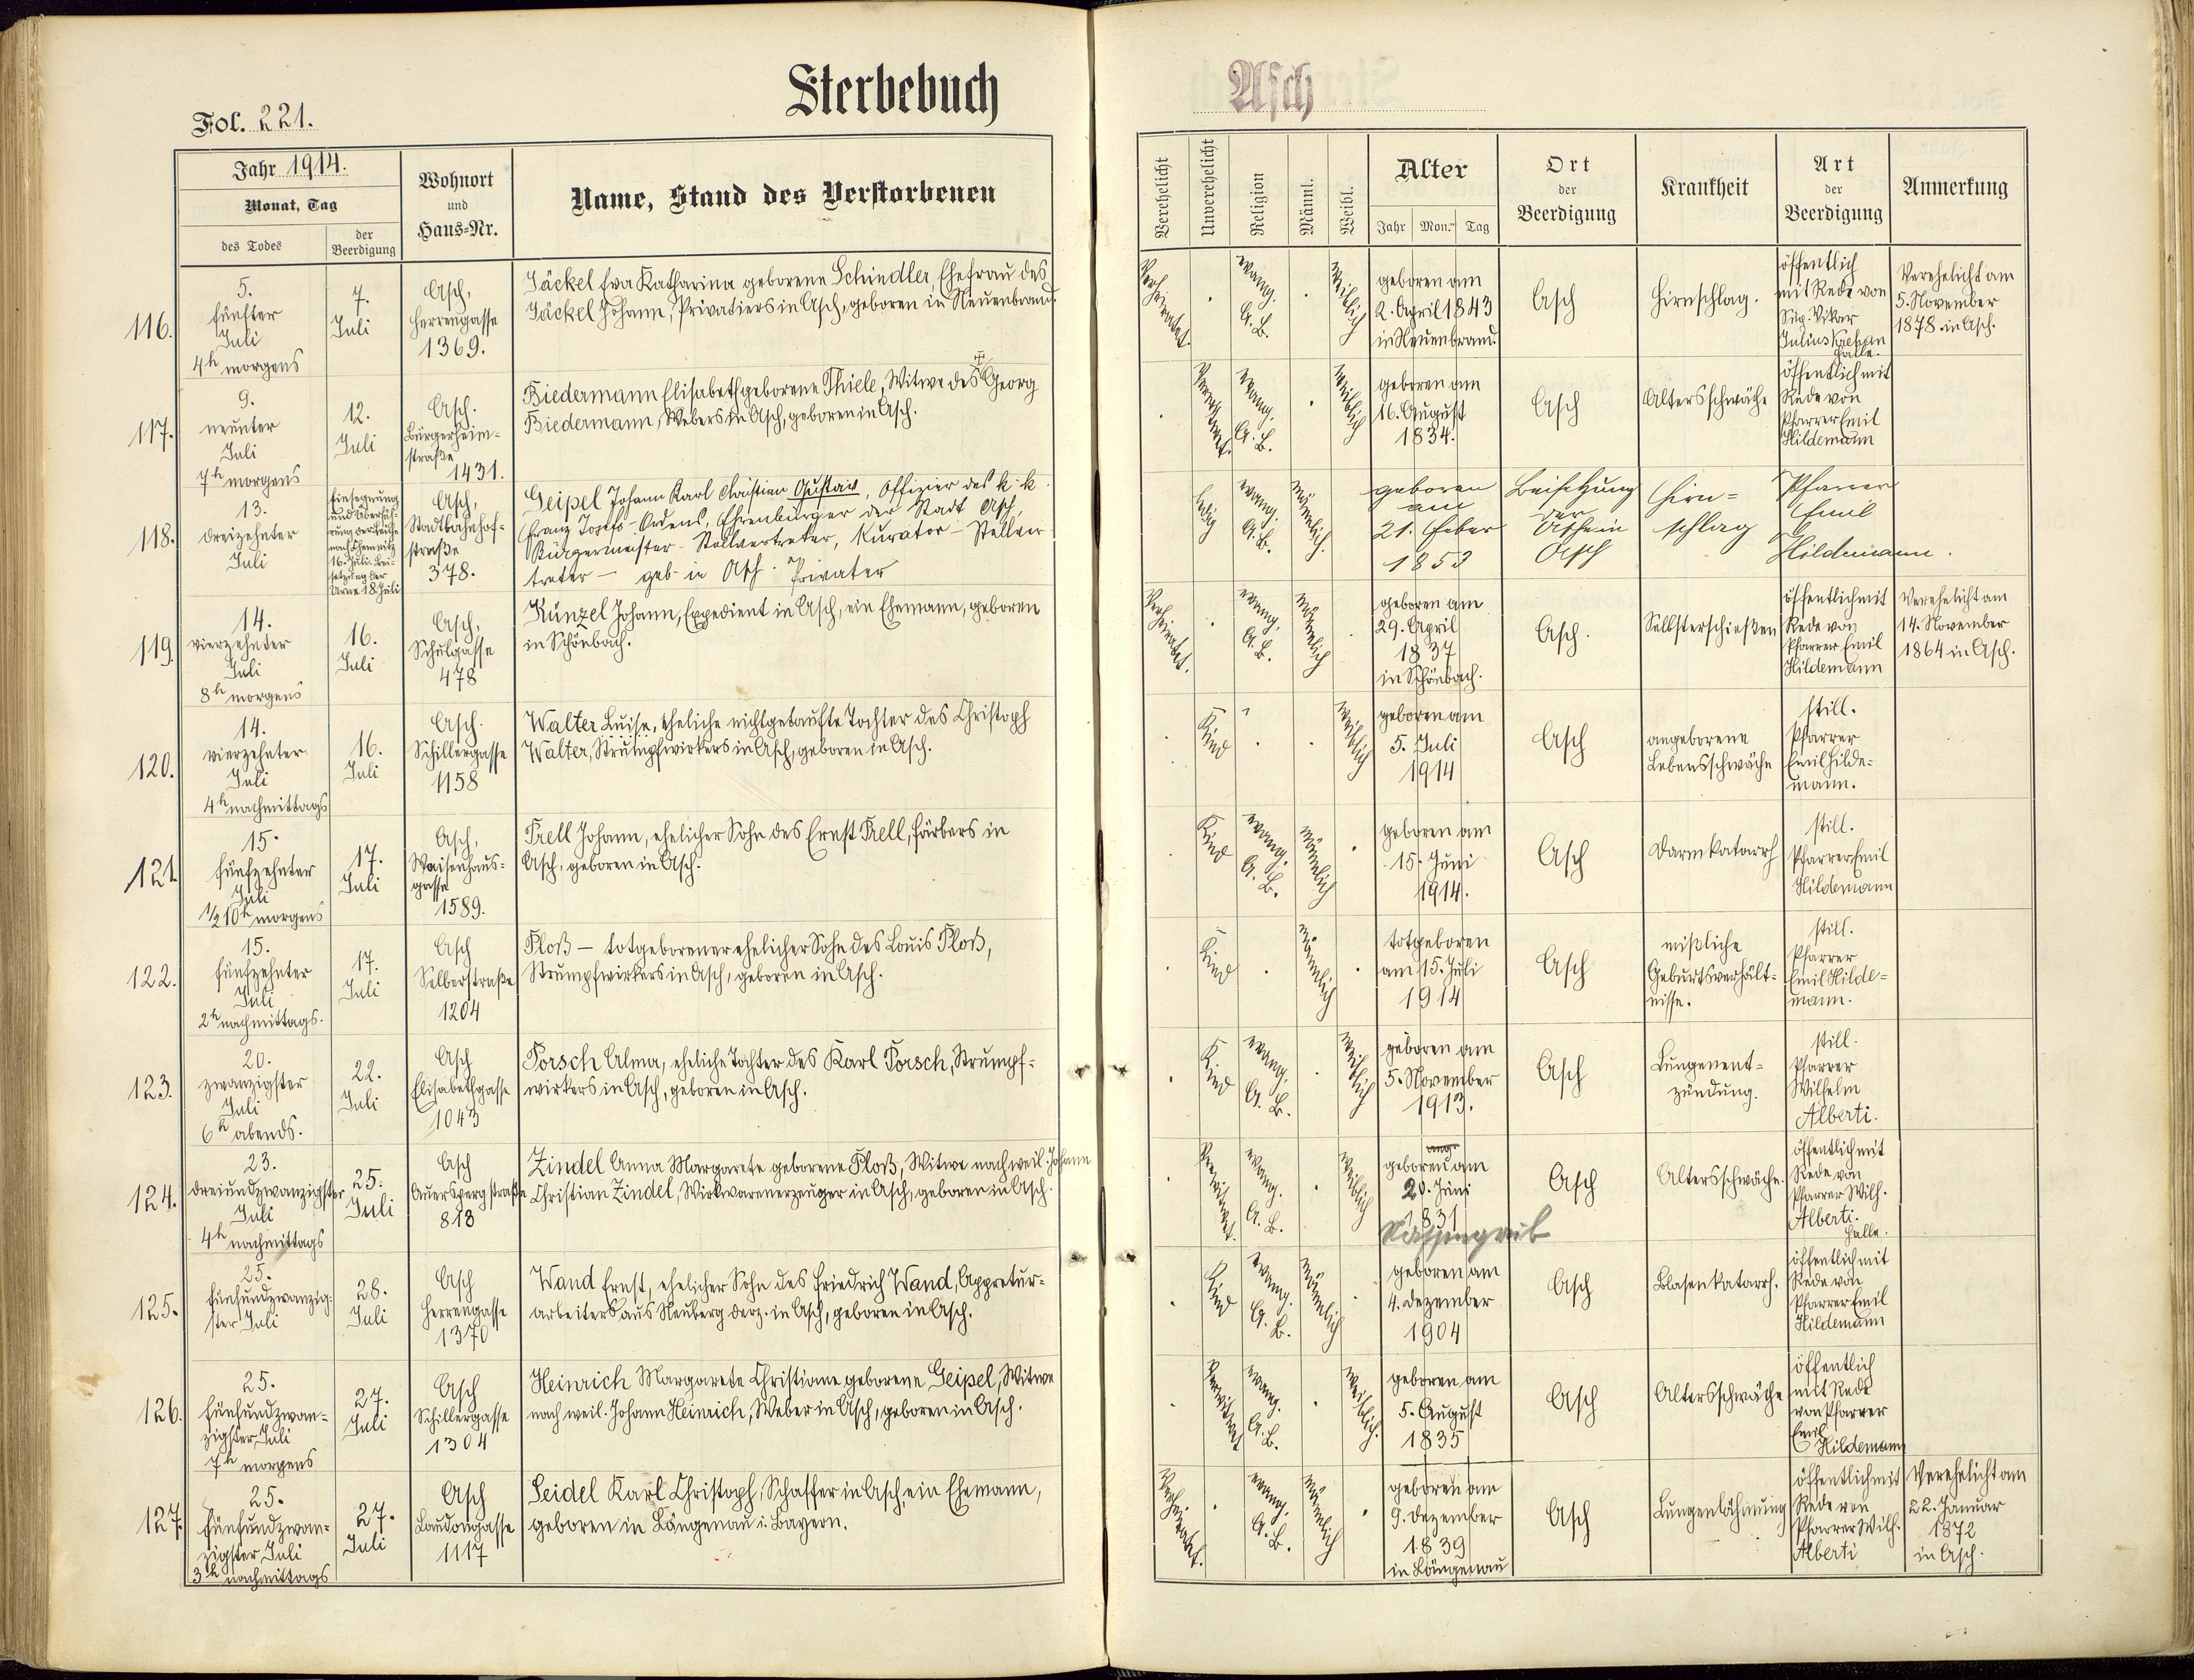 Sterbebuch
Asch
Fol. 221.
Jahr 1914.
Monat, Tag
des Todes
der Beerdigung
Wohnort
und
Haus-Nr.
Name, Stand des Verstorbenen
Verehelicht
Unverehelicht
Religion
Männl.
Weibl.
Alter
Jahr Mon. Tag
Ort
der
Beerdigung
Krankheit
Art
der
Beerdigung
Anmerkung
116.
5.
fünfter
Juli
4h morgens
7.
Juli
Asch,
Herrengasse
1369.
Jäckel Eva Katharina geborene Schindler, Ehefrau des
Jäckel Johann, Privatiers in Asch, geboren in Neuenbrand.
Verheiratet.
evang.
A. B.
weiblich
geboren am
2. April 1843
in Neuenbrand.
Asch
Hirnschlag.
öffentlich
mit Rede von
Vikar
Julius
Halle.
Verehelicht am
5. November
1878 in Asch.
117.
9.
neunter
Juli
7h morgens
12.
Juli
Asch.
Bürgerheim-
straße
1431.
Biedermann Elisabeth geborene Thiele, Witwe des ✝ Georg
Biedermann, Webers in Asch, geboren in Asch.
Verwitwet.
evang.
A. B.
weiblich
geboren am
16. August
1834.
Asch
Altersschwäche
öffentlich mit
Rede von
Pfarrer Emil
Hildemann
118.
13.
dreizehnter
Juli
Einsegnung
und Überfüh-
rung der Leiche
nach Chemnitz
16. Juli. Bei-
setzung der
Urne 18. Juli
Asch,
Stadtbahnhof-
straße
378.
Geipel Johann Karl Christian Gustav, Offizier des k. k.
Franz Josefs-Ordens, Ehrenbürger der Stadt Asch,
Bürgermeister-Stellvertreter, Kurator-Stellver-
treter — geb. in Asch. Privater
ledig
evang.
A. B.
männlich.
geboren
am
21. Feber
1853
Beisetzung
der
Urne in
Asch
Hirn-
schlag
Pfarrer
Emil
Hildemann.
119.
14.
vierzehnter
Juli
8h morgens
16.
Juli
Asch,
Schulgasse
478
Künzel Johann, Expedient in Asch, ein Ehemann, geboren
in Schönbach.
Verheiratet.
evang.
A. B.
männlich
geboren am
29. April
1837
in Schönbach.
Asch.
Selbsterschießen
öffentlich mit
Rede von
Pfarrer Emil
Hildemann
Verehelicht am
14. November
1864 in Asch.
120.
14.
vierzehnter
Juli
4h nachmittags
16.
Juli
Asch.
Schillergasse
1158
Walter Luise, eheliche nichtgetaufte Tochter des Christoph
Walter, Strumpfwirkers in Asch, geboren in Asch.
Kind
weiblich
geboren am
5. Juli
1914
Asch
angeborene
Lebensschwäche
still.
Pfarrer
Emil Hilde-
mann.
121.
15.
fünfzehnter
Juli
1/2 10h morgens
17.
Juli
Asch,
Waisenhaus-
gasse
1589.
Prell Johann, ehelicher Sohn des Ernst Prell, Färbers in
Asch, geboren in Asch.
Kind
evang.
A. B.
männlich
geboren am
15. Juni
1914.
Asch
Darmkatarrh
still.
Pfarrer Emil
Hildemann
122.
15.
fünfzehnter
Juli
2h nachmittags.
17.
Juli
Asch
Selberstraße
1204
Ploß — totgeborener ehelicher Sohn des Louis Ploß,
Strumpfwirkers in Asch, geboren in Asch.
Kind
männlich
totgeboren
am 15. Juli
1914
Asch
mißliche
Geburtsverhält-
nisse.
still.
Pfarrer
Emil Hilde-
mann.
123.
20.
zwanzigster
Juli
6h abends.
22.
Juli
Asch
Elisabethgasse
1043
Porsch Alma, eheliche Tochter des Karl Porsch, Strumpf-
wirkers in Asch, geboren in Asch.
Kind
evang.
A. B.
weiblich
geboren am
5. November
1913.
Asch
Lungenent-
zündung.
still.
Pfarrer
Wilhelm
Alberti.
124.
23.
dreiundzwanzigster
Juli
4h nachmittags
25.
Juli
Asch
Auersperg straße
818
Zindel Anna Margarete geborene Ploß, Witwe nach weil. Johann
Christian Zindel, Wirkwarenerzeuger in Asch, geboren in Asch.
Verwitwet.
evang.
A. B.
weiblich
geboren am
20. Juni
1831
Asch
Altersschwäche.
öffentlich mit
Rede von
Pfarrer Wilh.
Alberti.
Halle.
125.
25.
fünfundzwanzig-
ster Juli
28.
Juli
Asch
Herrengasse
1370
Wand Ernst, ehelicher Sohn des Friedrich Wand, Appretur-
arbeiters aus Neuberg derz. in Asch, geboren in Asch.
Kind
evang.
A. B.
männlich
geboren am
4. Dezember
1904
Asch
Blasenkatarrh.
öffentlich mit
Rede von
Pfarrer Emil
Hildemann
126.
25.
fünfundzwan-
zigster Juli
7h morgens
27.
Juli
Asch
Schillergasse
1304
Heinrich Margarete Christiane geborene Geipel, Witwe
nach weil. Johann Heinrich, Weber in Asch, geboren in Asch.
Verwitwet
evang.
A. B.
weiblich.
geboren am
5. August
1835
Asch
Altersschwäche
öffentlich
mit Rede
von Pfarrer
Emil
Hildemann
127.
25.
fünfundzwan-
zigster Juli
3h nachmittags
27.
Juli
Asch
Laudongasse
1117
Seidel Karl Christoph, Schaffer in Asch, ein Ehemann,
geboren in Längenau i. Bayern.
Verheiratet.
evang.
A. B.
männlich
geboren am
9. Dezember
1839
in Längenau
Asch
Lungenlähmung
öffentlich mit
Rede von
Pfarrer Wilh.
Alberti
Verehelicht am
22. Januar
1872
in Asch.